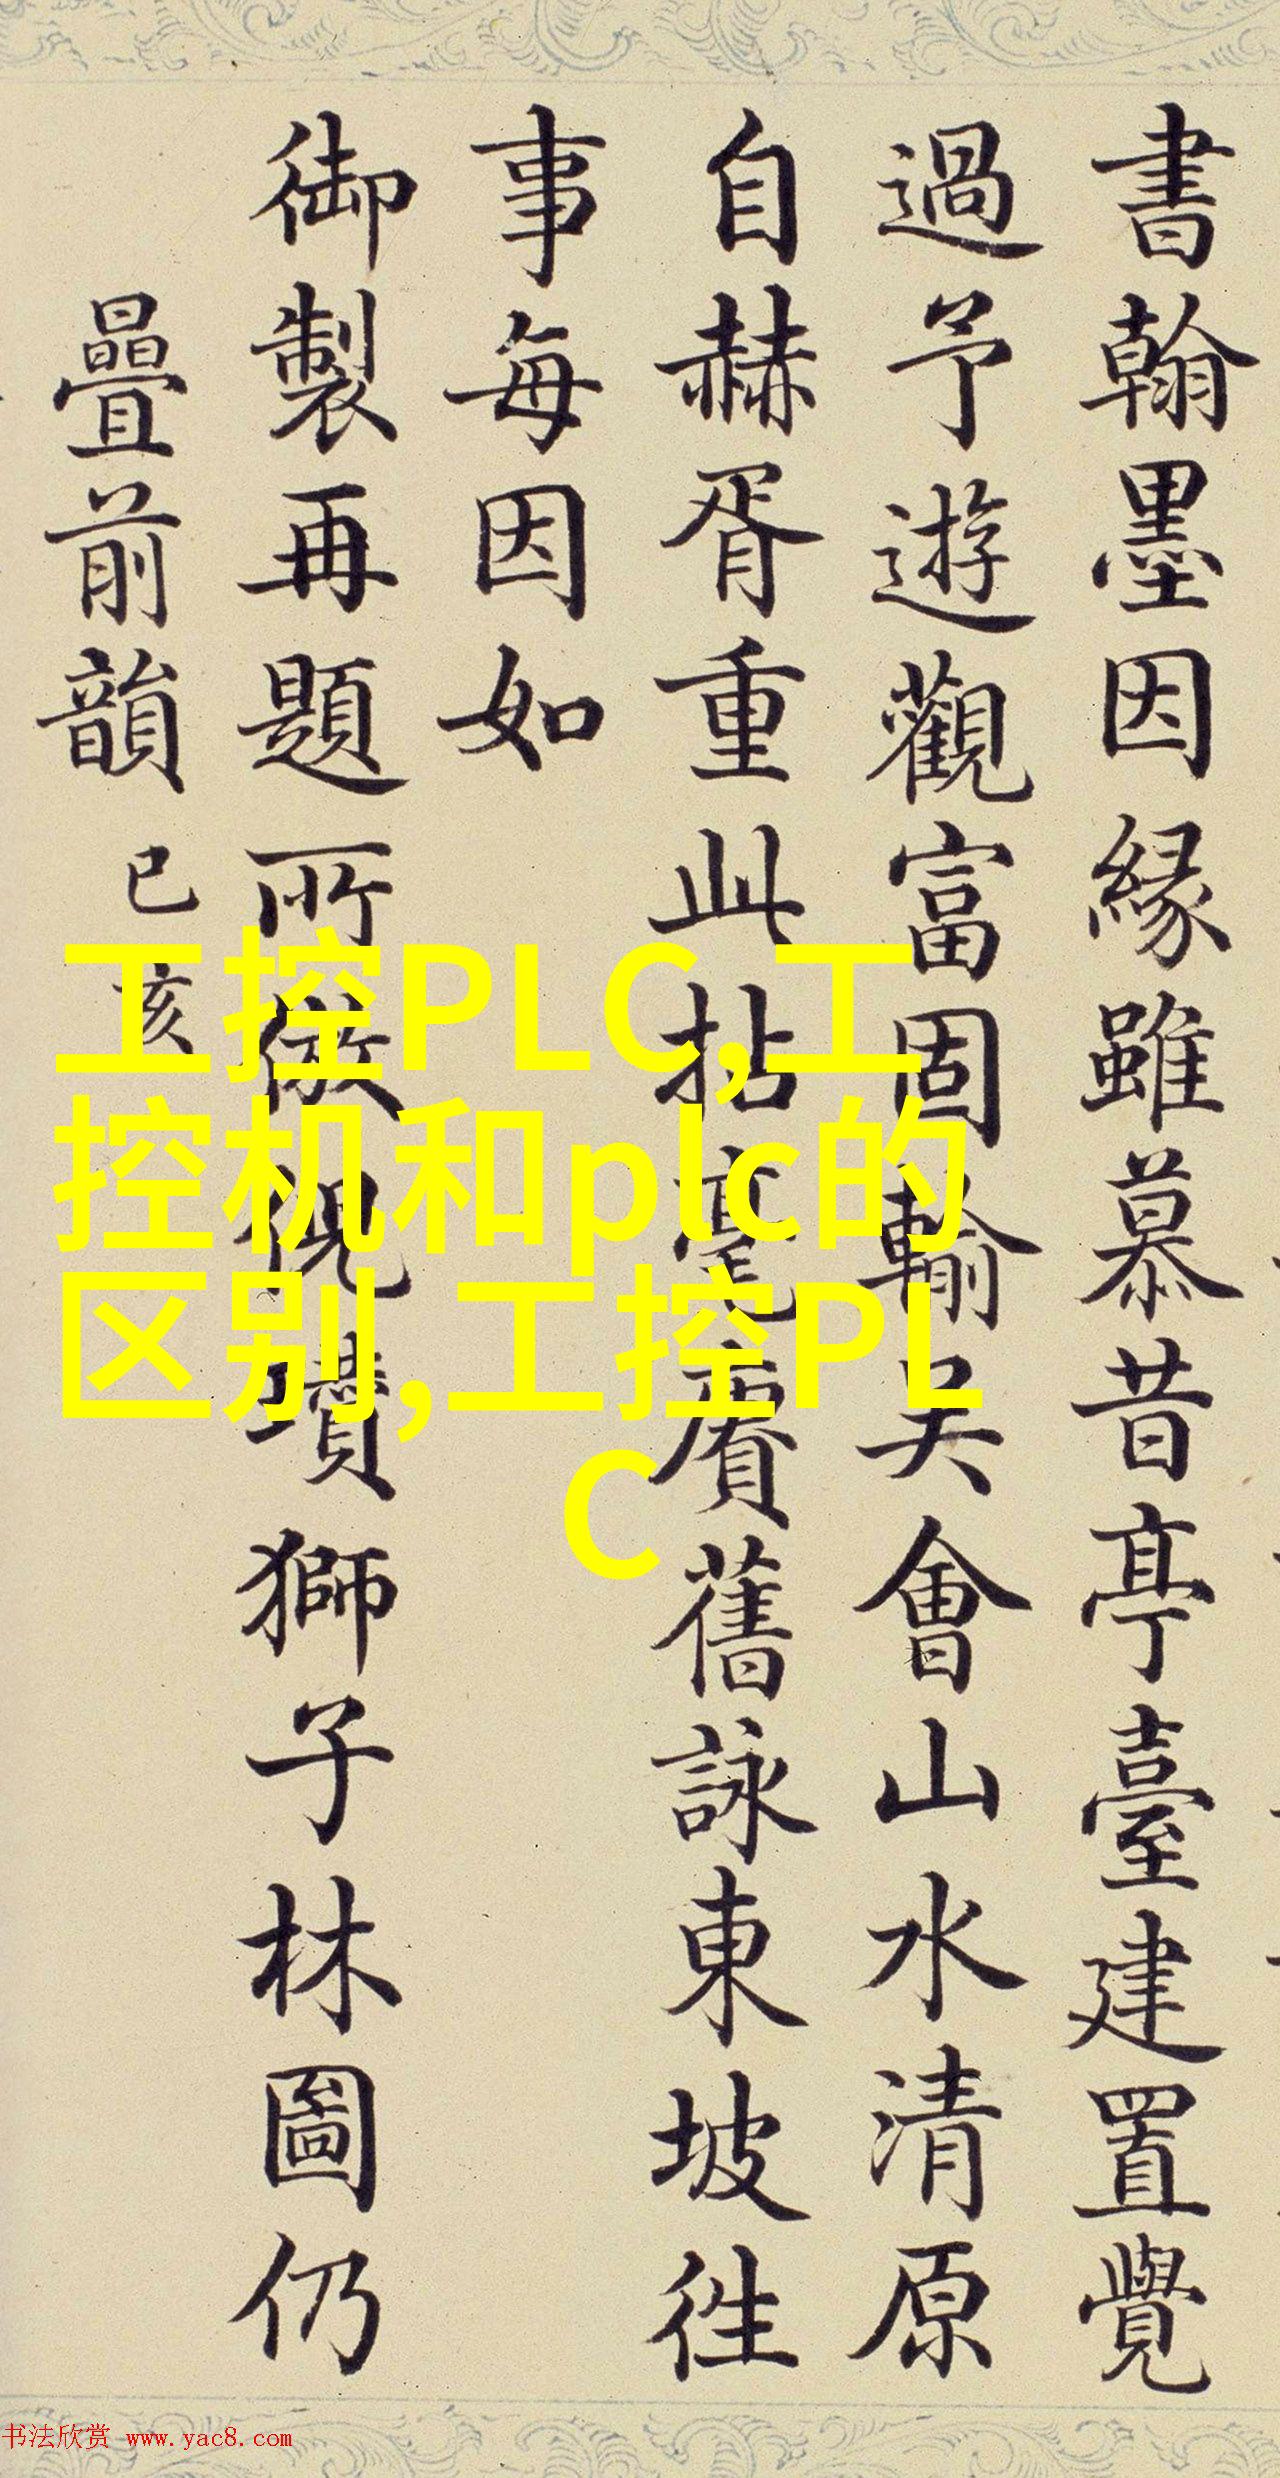 書翰墨因緣雖慕昔亭臺建置覺
過予遊觀富固輸吴會山水清原
自赫胥重此拈毫賡舊詠東坡徃
事每因如
御製再題所倣倪瓚獅子林圖仍
疊前韻 已亥
工控PLC,工
控机和plc的
区别,工控PL
C
书法欣赏 www.yac8.com